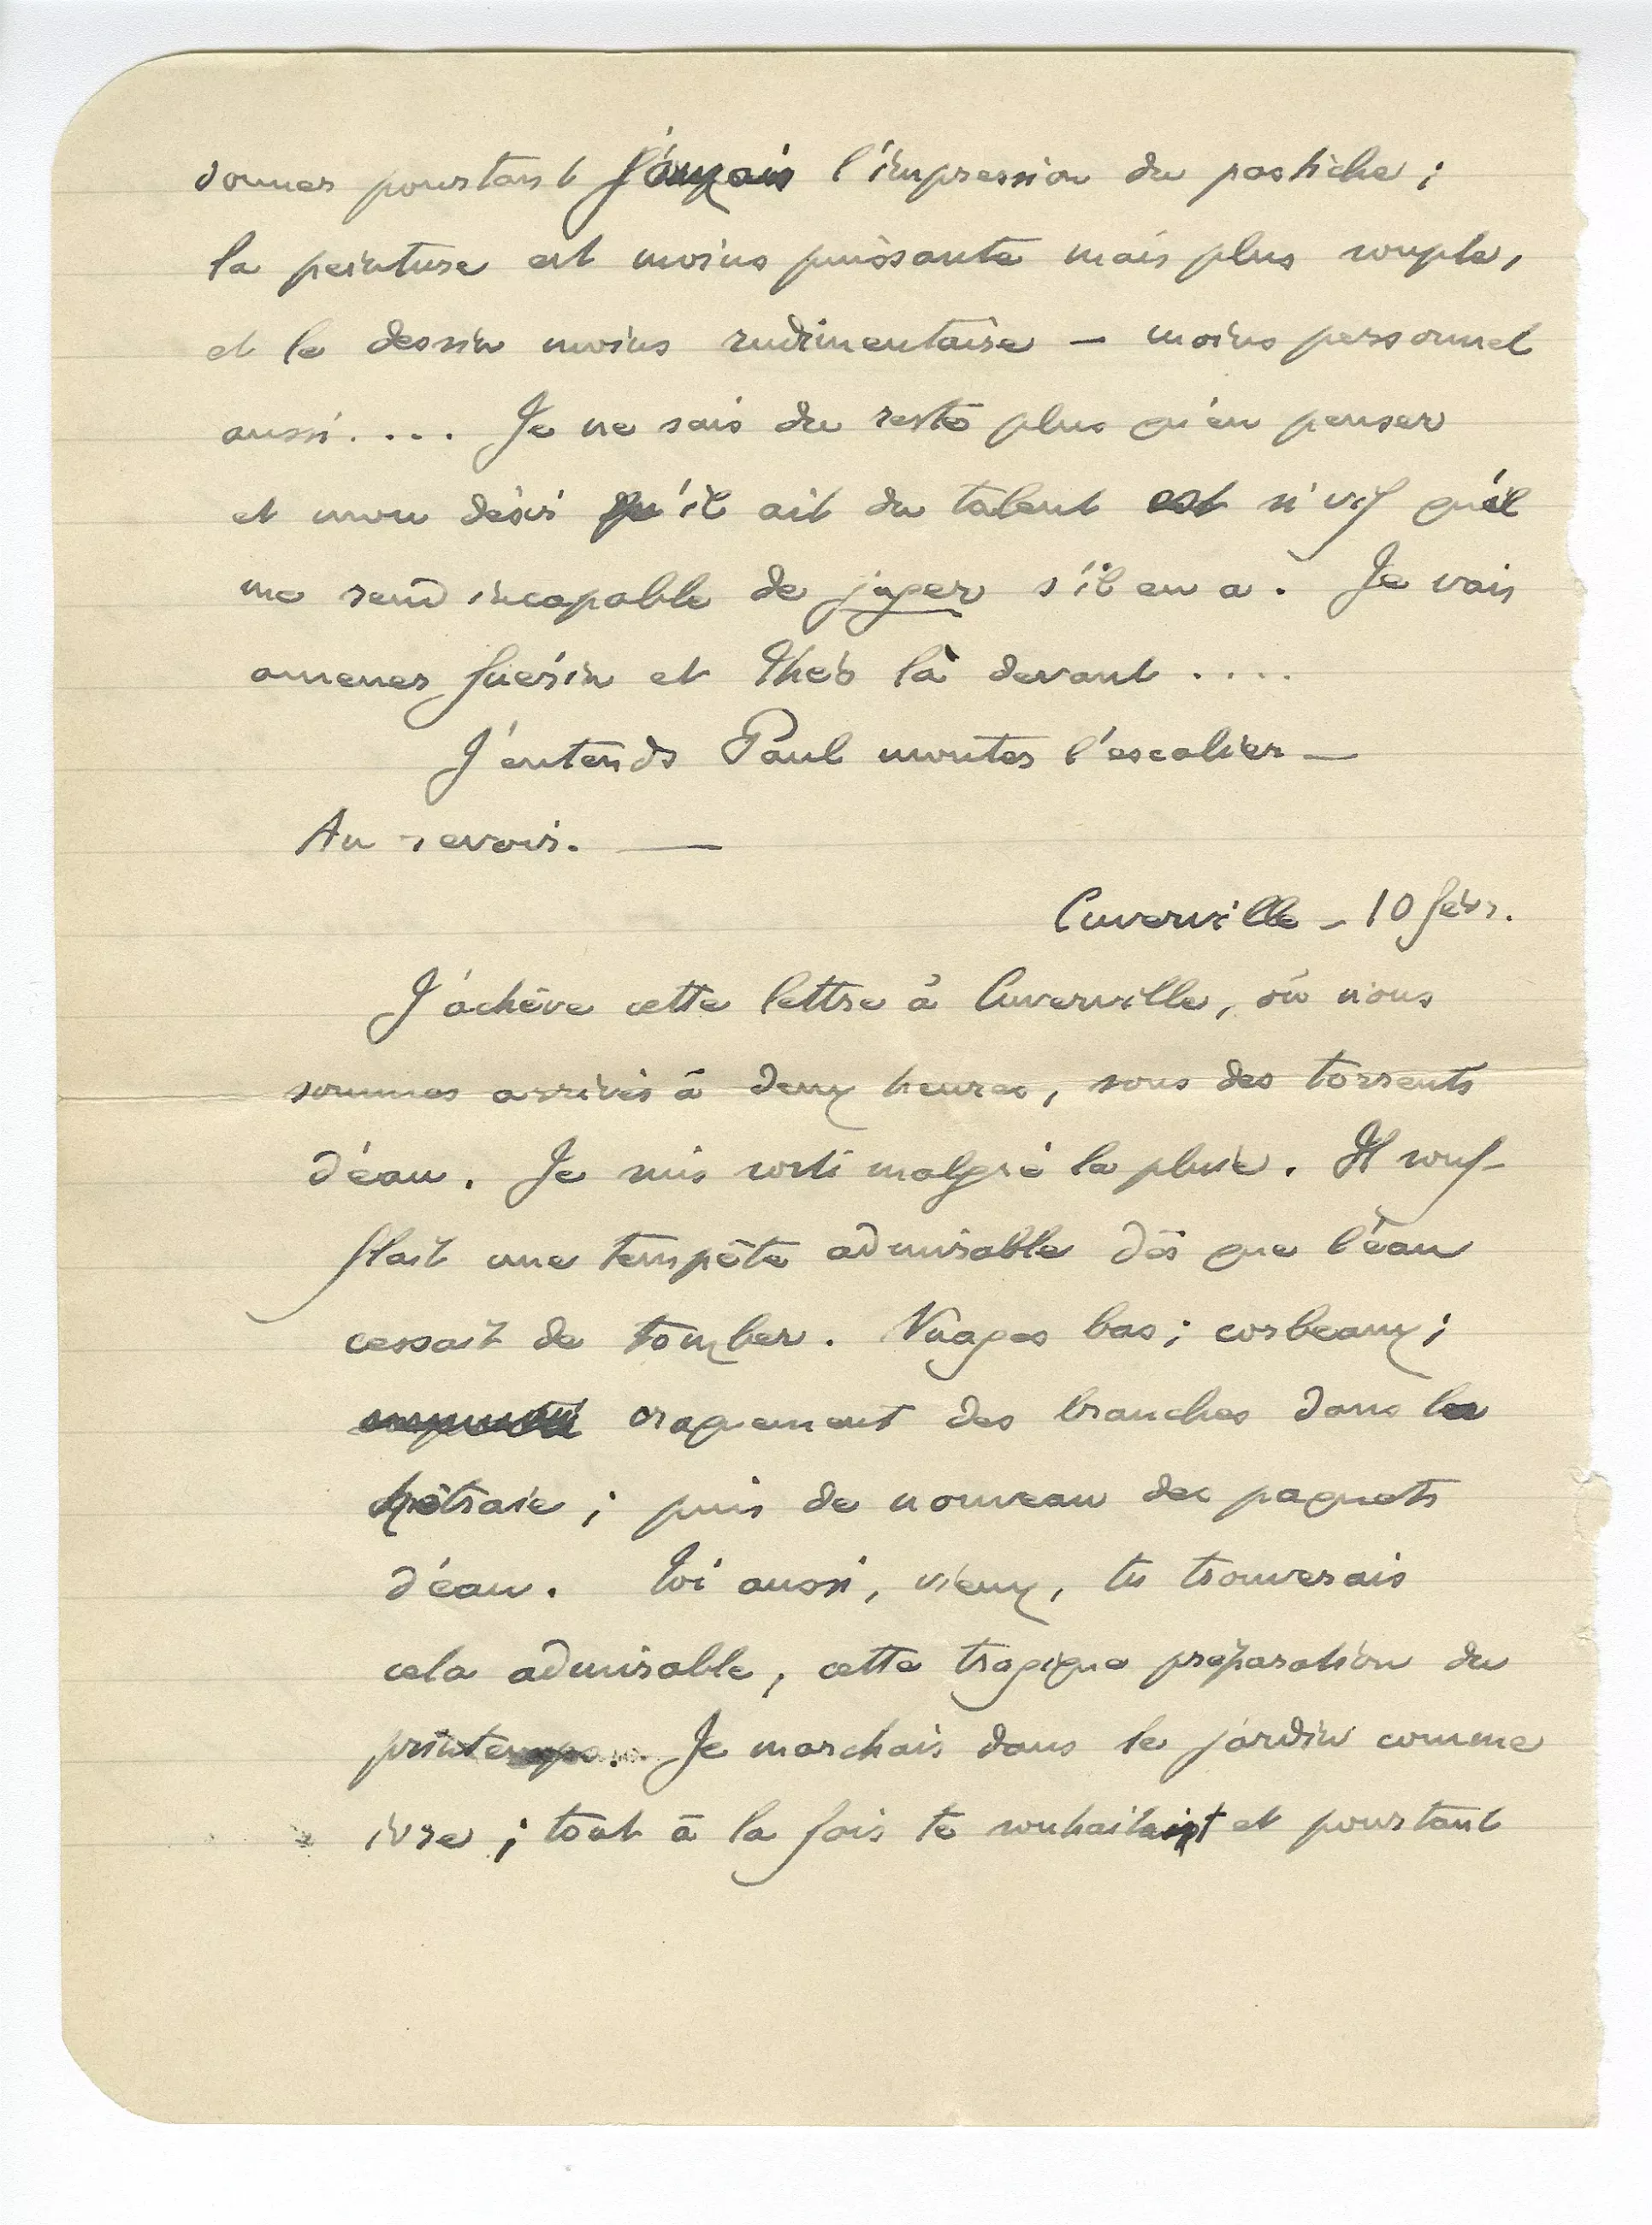 donner pourtant jamais l'impression du pastiche ;
la peinture est moins puissante mais plus souple,
et le dessin moins rudimentaire — moins personnel
aussi.... Je ne sais du reste plus qu'en penser
et mon désir qu'il ait du talent est si vif qu'il
me rend incapable de juger s'il en a. Je vais
amener Guérin et Théo là devant ....
J'entends Paul monter l'escalier —
Au revoir. —
Cuverville — 10 févr.
J'achève cette lettre à Cuverville, où nous
sommes arrivés à deux heures, sous des torrents
d'eau. Je suis sorti malgré la pluie. Il souf-
flait une tempête admirable dès que l'eau
cessait de tomber. Nuages bas ; corbeaux ;
craquement des branches dans la
hêtraie ; puis de nouveau des paquets
d'eau. Toi aussi, vieux, tu trouverais
cela admirable, cette tragique préparation du
printemps... Je marchais dans le jardin comme
ivre ; tout à la fois te souhaitant et pourtant